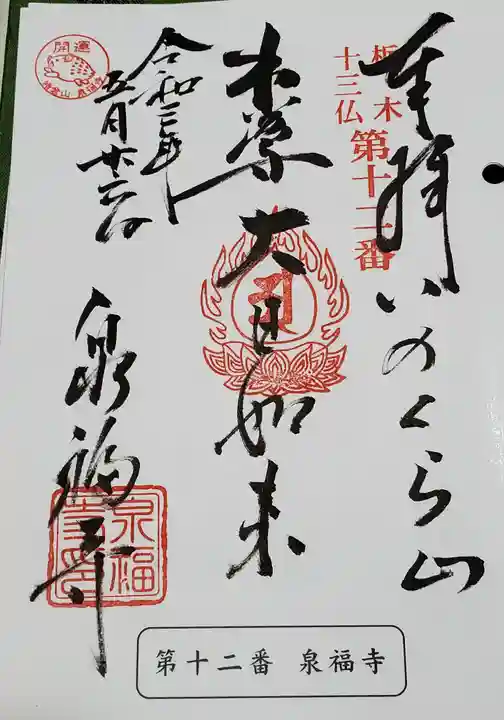 奉拝 いのくら山
栃木
十三仏
第十二番
本尊 大日如来
令和三年
五月廿六日
泉福寺
開運
泉福寺
第十二番 泉福寺